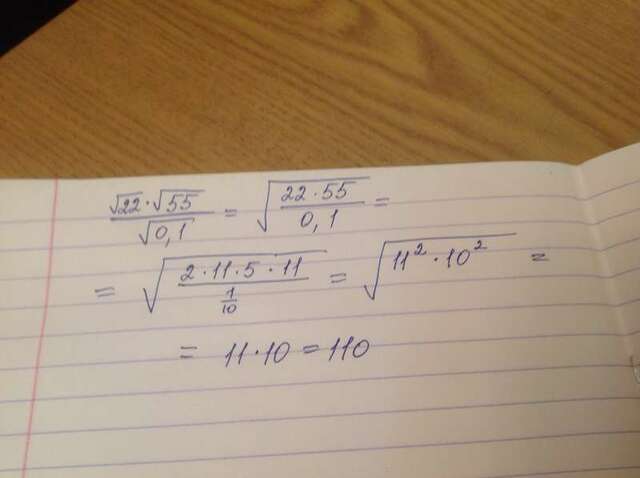 √22·√55/√0,1 = √(22·55/0,1) =
= √(2·11·5·11/(1/10)) = √(11²·10²) =
= 11·10 = 110